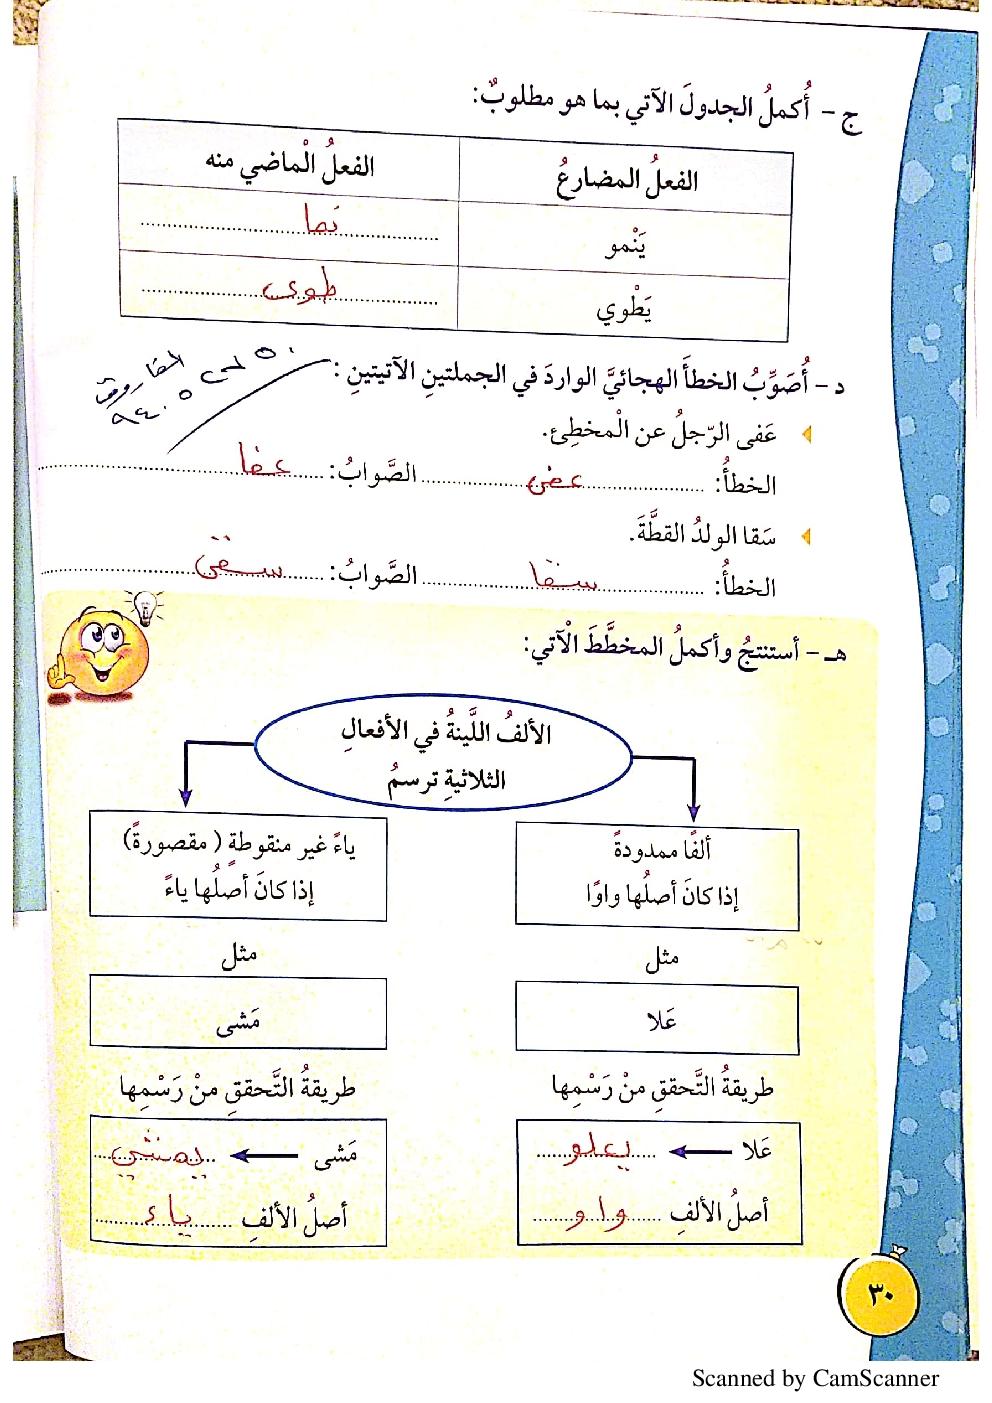 ج - أُكملُ الجدولَ الآتي بما هو مطلوبٌ:
الفعلُ المضارعُ الفعلُ الْماضي منه
يَنْمو نَما
يَطْوي طوى
د - أُصَوِّبُ الخطأَ الهجائيَّ الواردَ في الجملتينِ الآتيتينِ :
عَفى الرّجلُ عن الْمخطِئ.
الخطأُ: عفى الصَّوابُ: عفا
سَقا الولدُ القطَّةَ.
الخطأُ: سقا الصَّوابُ: سقى
هـ - أستنتجُ وأكملُ المخطَّطَ الْآتي:
الألفُ اللَّينةُ في الأفعالِ
الثلاثيةِ ترسمُ
ألفًا ممدودةً
إذا كانَ أصلُها واوًا
مثل
عَلا
طريقةُ التَّحققِ منْ رَسْمِها
عَلا يعلو
أصلُ الألفِ واو
ياءً غير منقوطةٍ ( مقصورةً)
إذا كانَ أصلُها ياءً
مثل
مَشى
طريقةُ التَّحققِ منْ رَسْمِها
مَشى يمشي
أصلُ الألفِ ياء
٣٠
Scanned by CamScanner